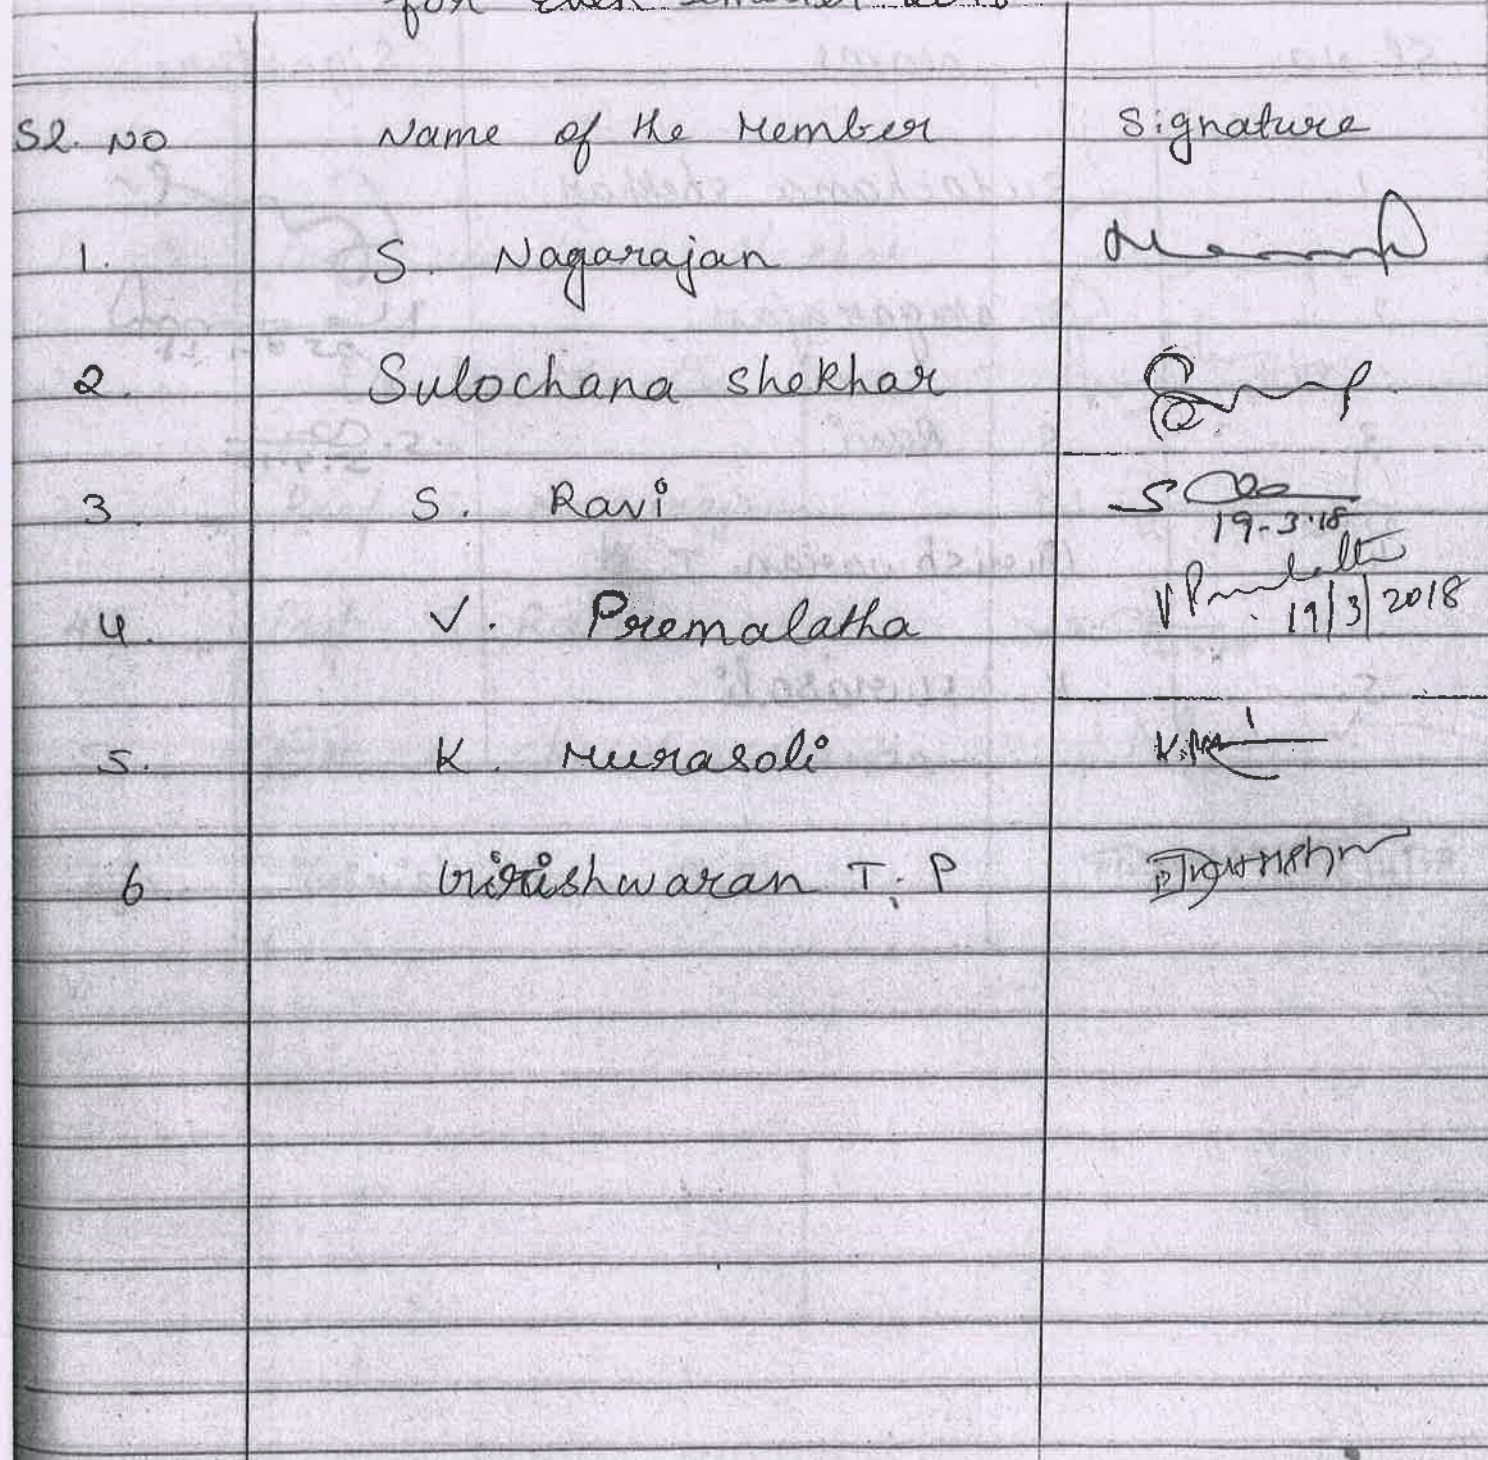 for even semester 2018
Sl. NO Name of the Member Signature
1. S. Nagarajan
2. Sulochana Shekhar
3. S. Ravi S
19-3-18
4. V. Premalatha V Premalatha
19/3/2018
5. K. Murasoli
6 Girishwaran T. P